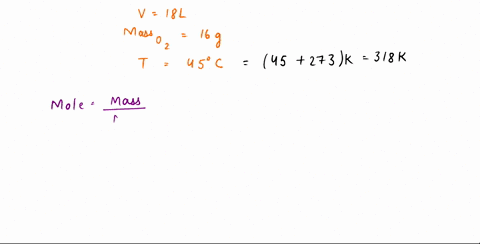 V = 18L
Mass O₂ = 16 g
T = 45°C = (45 + 273)K = 318K
Mole = Mass